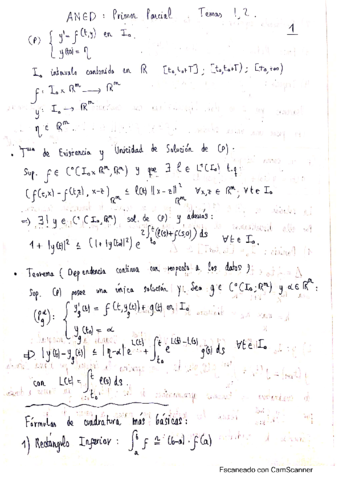 ANED : Primer Parcial. Temas 1, 2.
1
(P) { y' = f(t,y) en I₀
y(t₀) = η
I₀ intervalo contenido en ℝ [t₀,t₀+T] ; [t₀,t₀+T) ; [t₀,+∞)
f: I₀ × ℝᵐ → ℝᵐ
y: I₀ → ℝᵐ
η ∈ ℝᵐ
• Tma de Existencia y Unicidad de Solución de (P).
Sup. f ∈ C⁰(I₀ × ℝᵐ, ℝᵐ) y que ∃ l ∈ C⁰(I₀) t.q.
(f(t,x) - f(t,z), x-z)_ℝᵐ ≤ l(t) ||x-z||²_ℝᵐ ∀x,z ∈ ℝᵐ, ∀t ∈ I₀
⇒ ∃! y ∈ C¹(I₀, ℝᵐ) sol. de (P) y además:
1 + |y(t)|² ≤ (1+|y(t₀)|²) e^{2∫_{t₀}^t (l(s)+f(s,0)) ds} ∀t ∈ I₀.
• Teorema (Dependencia continua con respecto a los datos).
Sup. (P) posee una única solución y. Sea g ∈ C⁰(I₀; ℝᵐ) y α ∈ ℝᵐ:
(P_g): { y'_g(t) = f(t, y_g(t)) + g(t) en I₀
y_g(t₀) = α
⇒ |y(t) - y_g(t)| ≤ |η-α| e^{L(t)} + ∫_{t₀}^t e^{L(t)-L(s)} g(s) ds ∀t ∈ I₀
con L(t) = ∫_{t₀}^t l(s) ds.
Fórmulas de cuadratura más básicas:
1) Rectángulo Inferior: ∫_a^b f ≅ (b-a)·f(a)
Escaneado con CamScanner